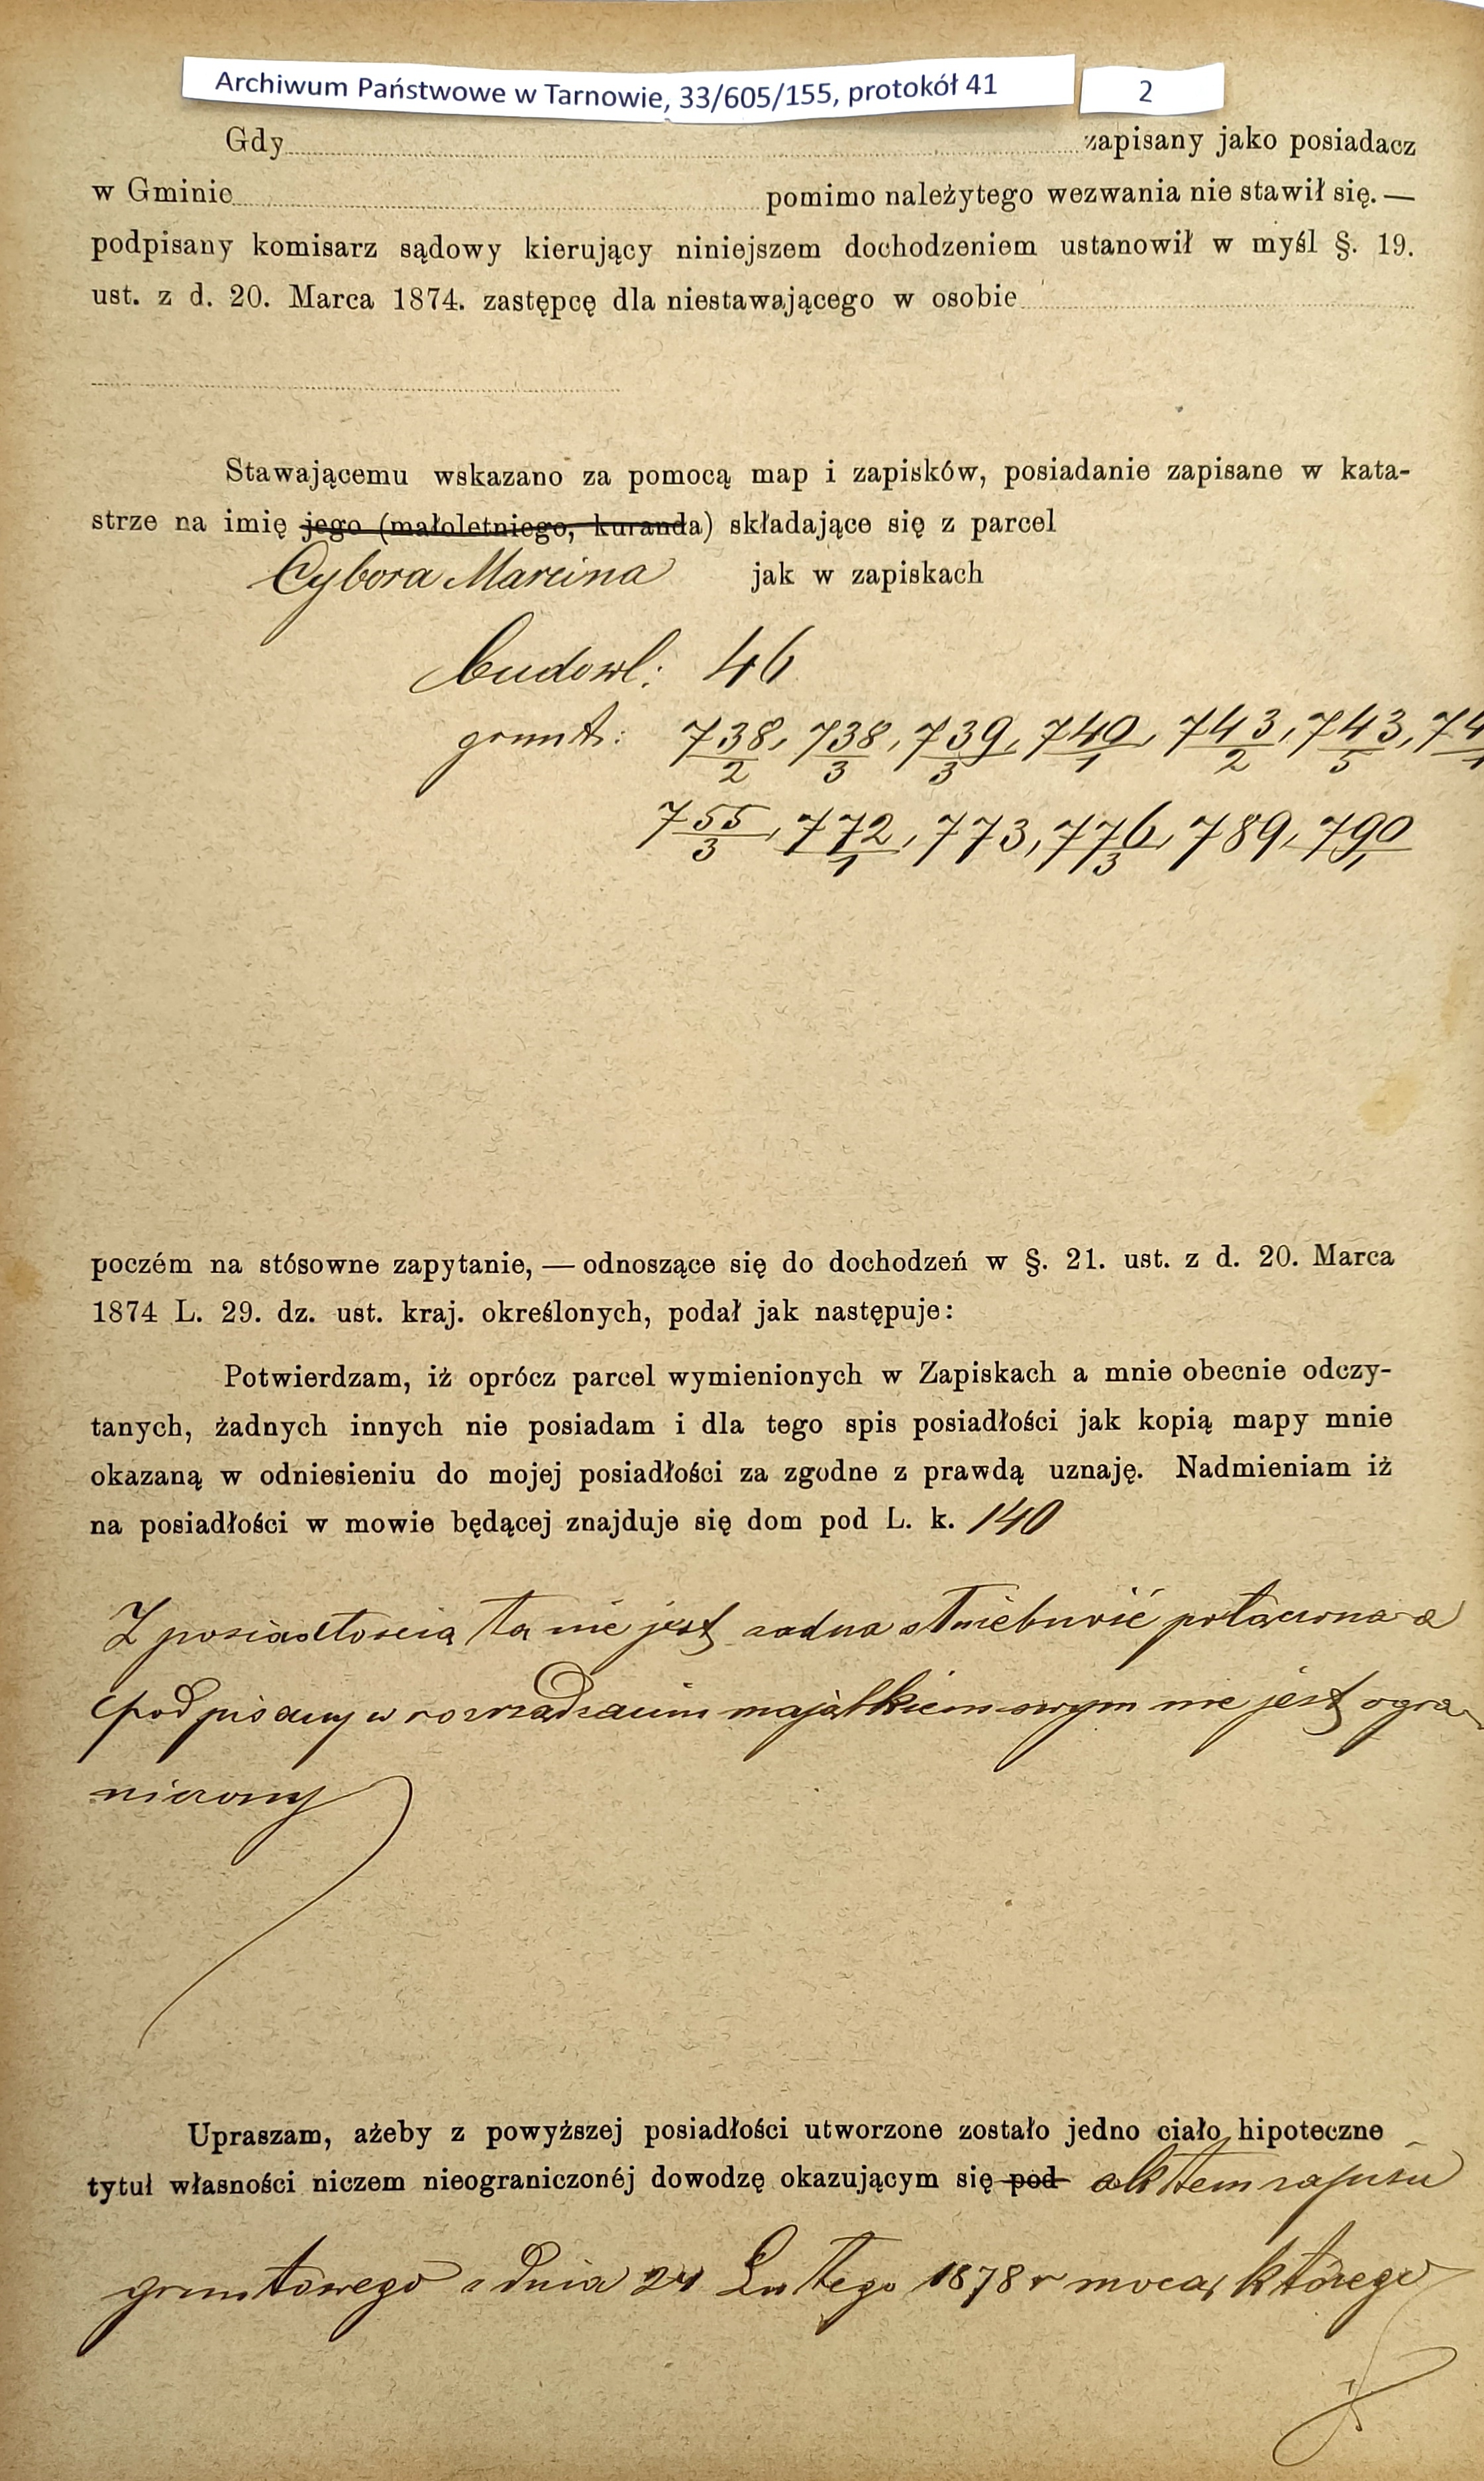 Archiwum Państwowe w Tarnowie, 33/605/155, protokół 41 2
Gdy zapisany jako posiadacz
w Gminie pomimo należytego wezwania nie stawił się. —
podpisany komisarz sądowy kierujący niniejszem dochodzeniem ustanowił w myśl §. 19.
ust. z d. 20. Marca 1874. zastępcę dla niestawającego w osobie
Stawającemu wskazano za pomocą map i zapisków, posiadanie zapisane w kata-
strze na imię jego (małoletniego, kuranda) składające się z parcel
Cybora Marcina jak w zapiskach
budowl: 46
grunt: 738/2, 738/3, 739/3, 740/1, 743/2, 743/5, 74
755/3, 772/1, 773, 776/3, 789, 790/1
poczém na stósowne zapytanie, — odnoszące się do dochodzeń w §. 21. ust. z d. 20. Marca
1874 L. 29. dz. ust. kraj. określonych, podał jak następuje:
Potwierdzam, iż oprócz parcel wymienionych w Zapiskach a mnie obecnie odczy-
tanych, żadnych innych nie posiadam i dla tego spis posiadłości jak kopią mapy mnie
okazaną w odniesieniu do mojej posiadłości za zgodne z prawdą uznaję. Nadmieniam iż
na posiadłości w mowie będącej znajduje się dom pod L. k. 140
Z posiadłością ta nie jest żadna służebność połączona a
podpisany w rozrządzaniu majątkiem swym nie jest ogra-
niczony
Upraszam, ażeby z powyższej posiadłości utworzone zostało jedno ciało hipoteczne
tytuł własności niczem nieograniczonéj dowodzę okazującym się pod aktem zapisu
gruntowego z dnia 24 Lutego 1878 r mocą którego